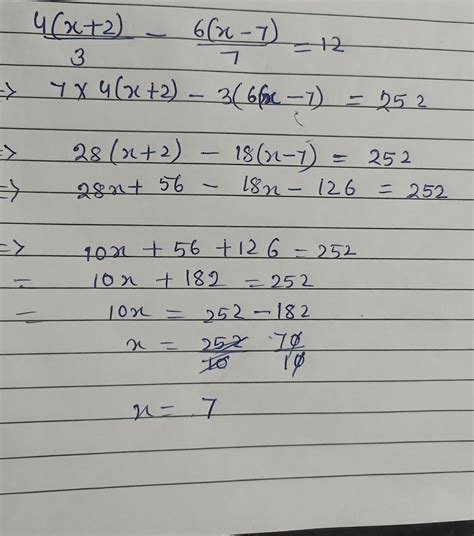 4(x+2)/3 - 6(x-7)/7 = 12
=> 7 × 4(x+2) - 3(6(x-7) = 252
=> 28(x+2) - 18(x-7) = 252
=> 28x + 56 - 18x - 126 = 252
=> 10x + 56 + 126 = 252
= 10x + 182 = 252
= 10x = 252 - 182
x = 252/10 70/10
x = 7